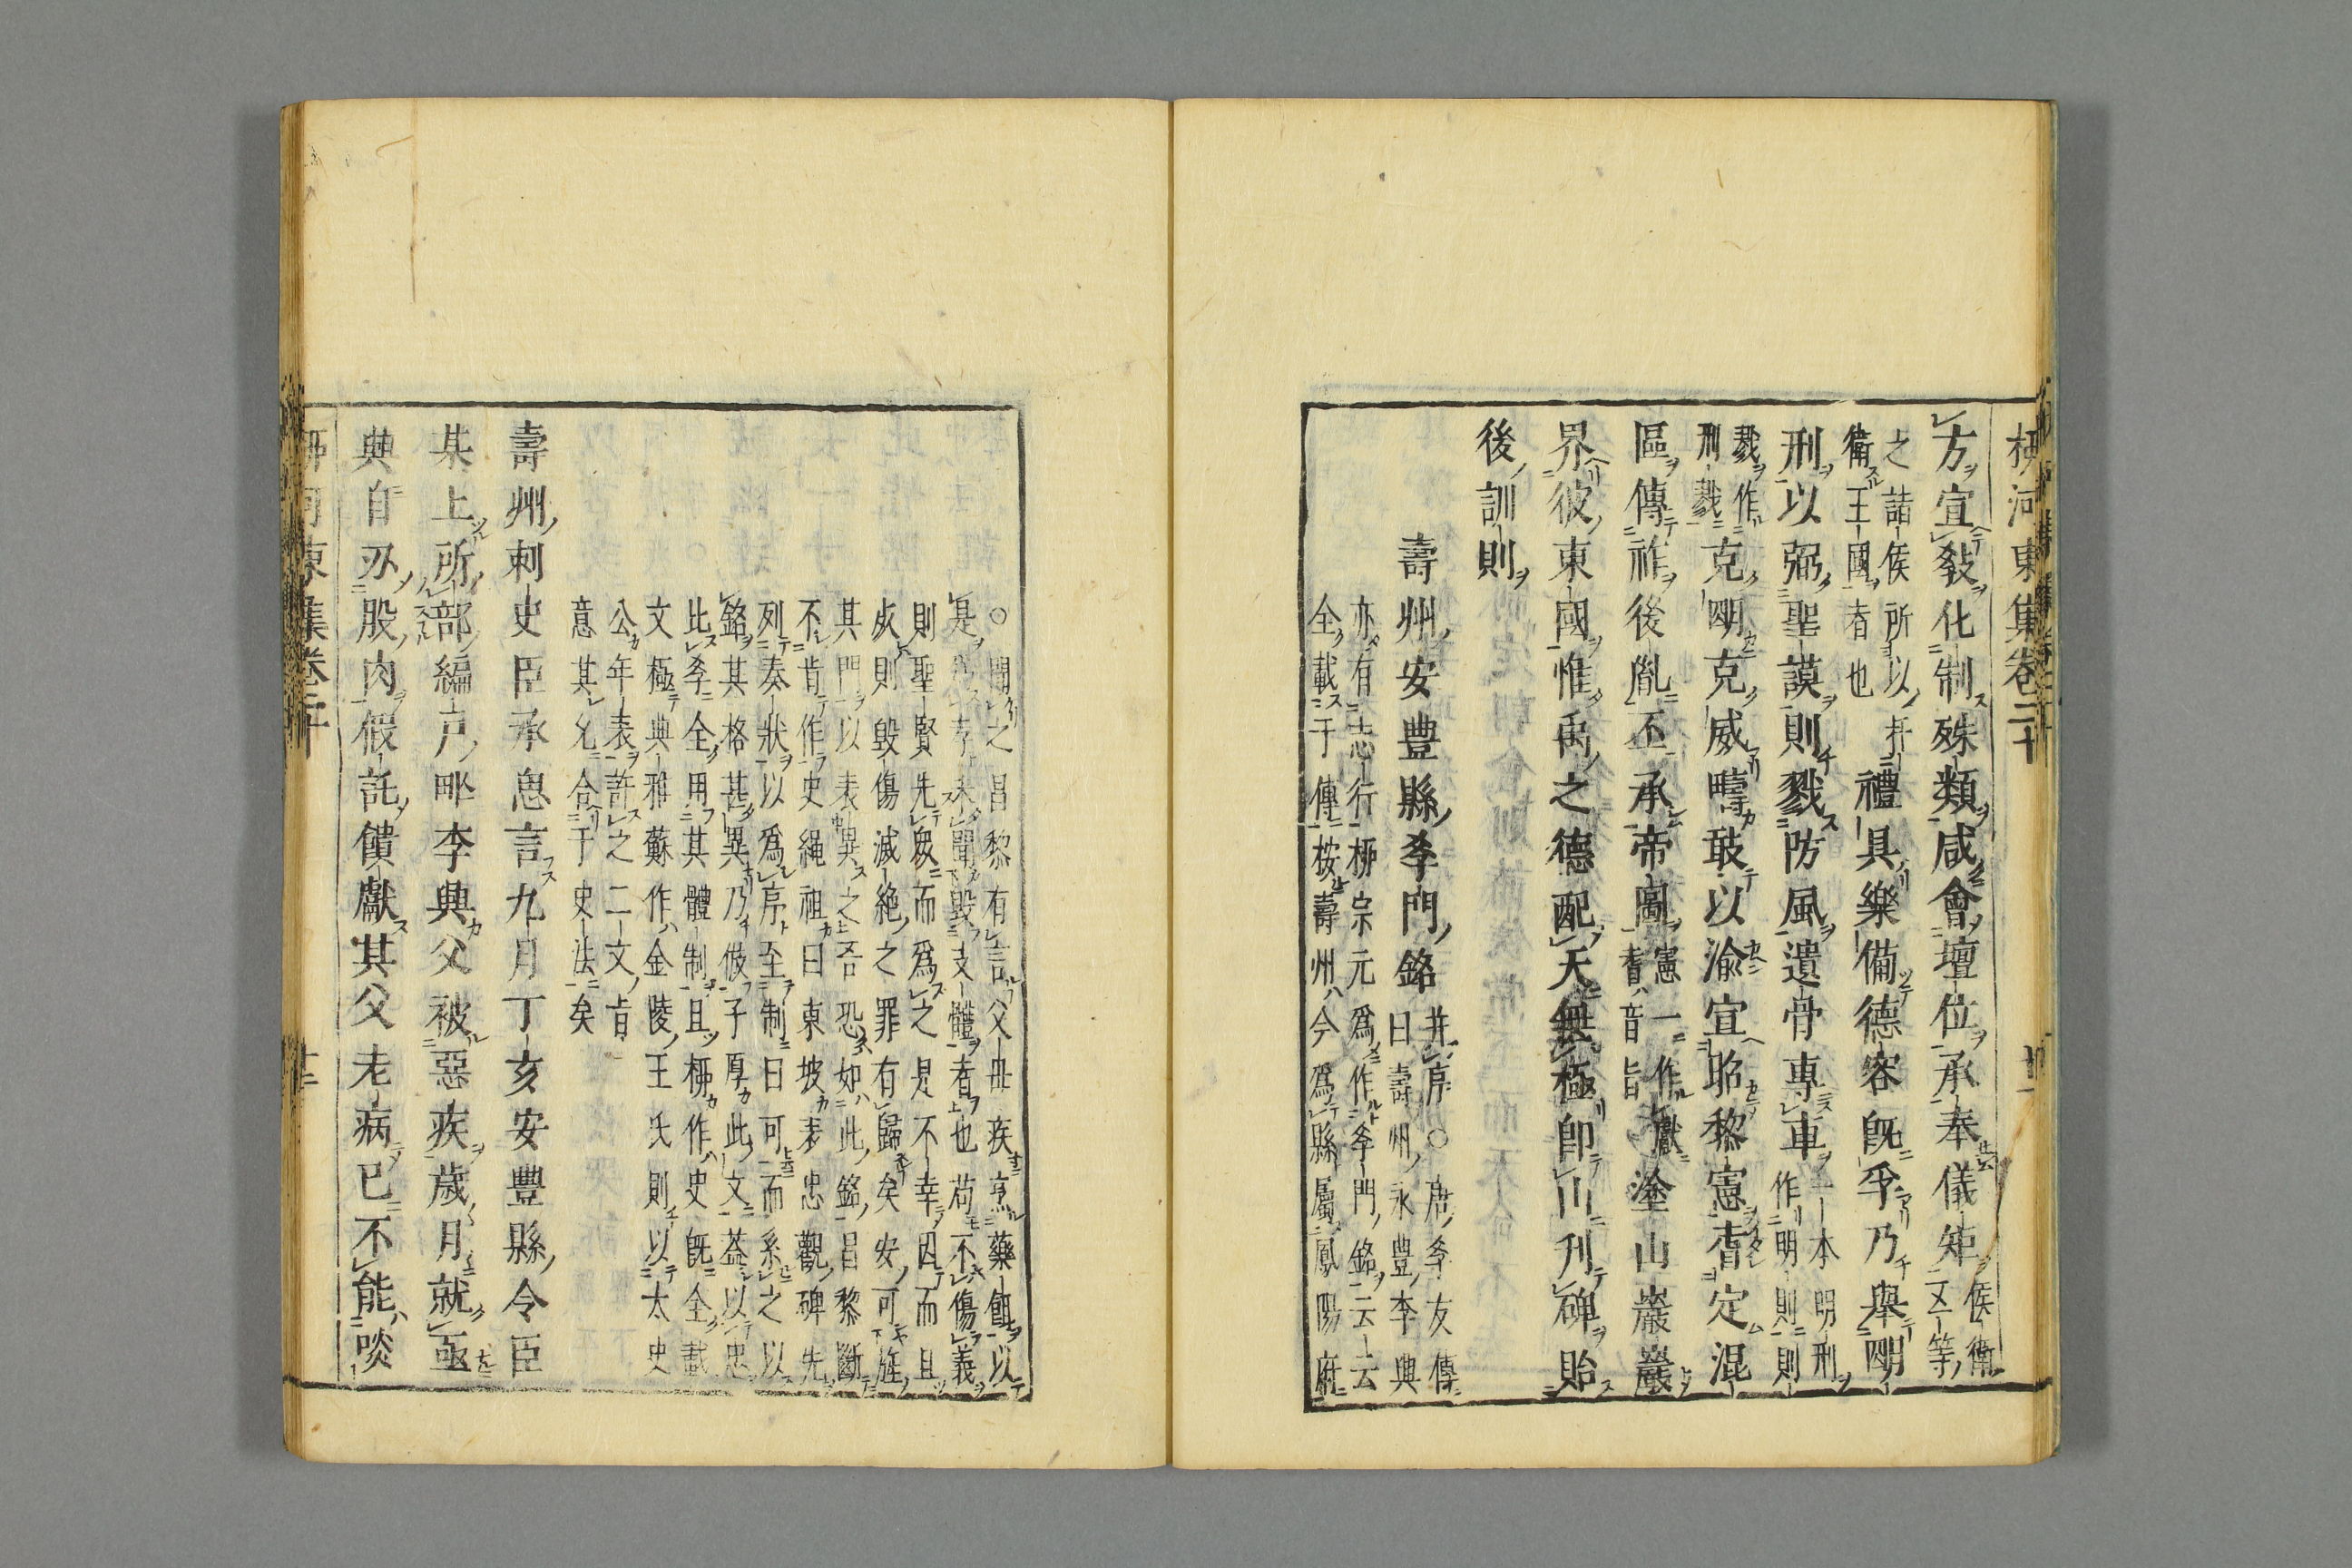 柳河東集卷二十 廿一
方宣敎化制殊類咸會壇位承奉儀矩 侯衛
又等
之諸侯所以扞
衛王國者也 禮具樂備德容旣孚乃舉明
刑以弼聖謨則戮防風遺骨專車 一本明刑
作明則則
戮作
刑戮 克明克威疇敢以渝宣昭黎憲耆定混
區傳祚後胤丕承帝圖 憲一作獻
耆音旨 塗山巖巖
界彼東國惟禹之德配天無極卽山刋碑貽
後訓則
壽州安豊縣孝門銘 并序○唐孝友傳
曰壽州永豊李典
亦有志行柳宗元爲作孝門銘云云
全載于傳按壽州今爲縣屬鳳陽府
○聞之昌黎有言父毋疾烹藥餌以
是爲孝未聞毀支體者也苟不傷義
則聖賢先衆而爲之是不幸因而且
歿則毀傷滅絶之罪有歸矣安可旌
其門以表異之吾恐如此銘昌黎斷
不昔作史繩祖曰東坡表忠觀碑先
列奏狀以爲序至制曰可而系之以
銘其格甚異乃倣子厚此文葢以忠
比孝全用其體制且柳作史旣全載
文極典雅蘇作金陵王氏則以太史
公年表許之二文㫖
意其允合于史法矣
壽州刺史臣承思言九月丁亥安豊縣令臣
某上所部編戸甿李典父被惡疾歲月就亟
典自刃股肉假託饋獻其父老病已不能啖
柳河東集卷二十 廿二